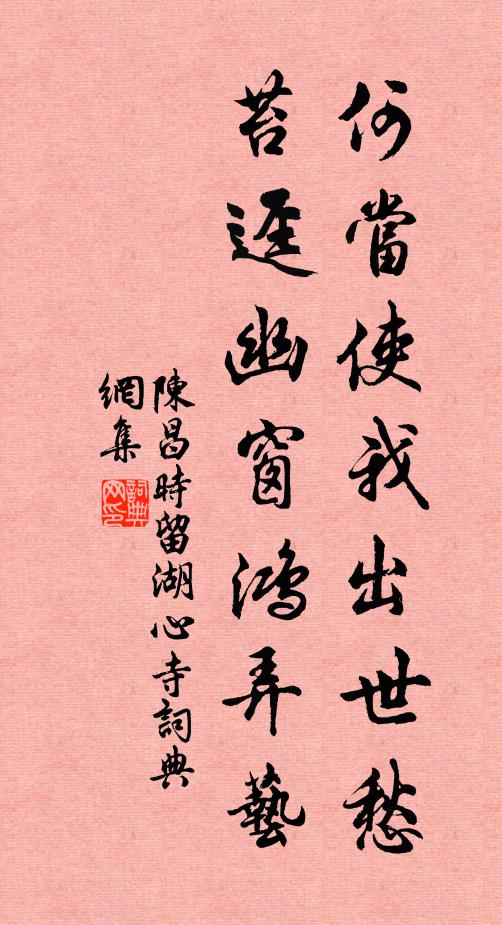 何當使我出世愁
苔逕幽窗鴻弄藝
陳昌時留湖心寺詞典
網集
詞典
网印